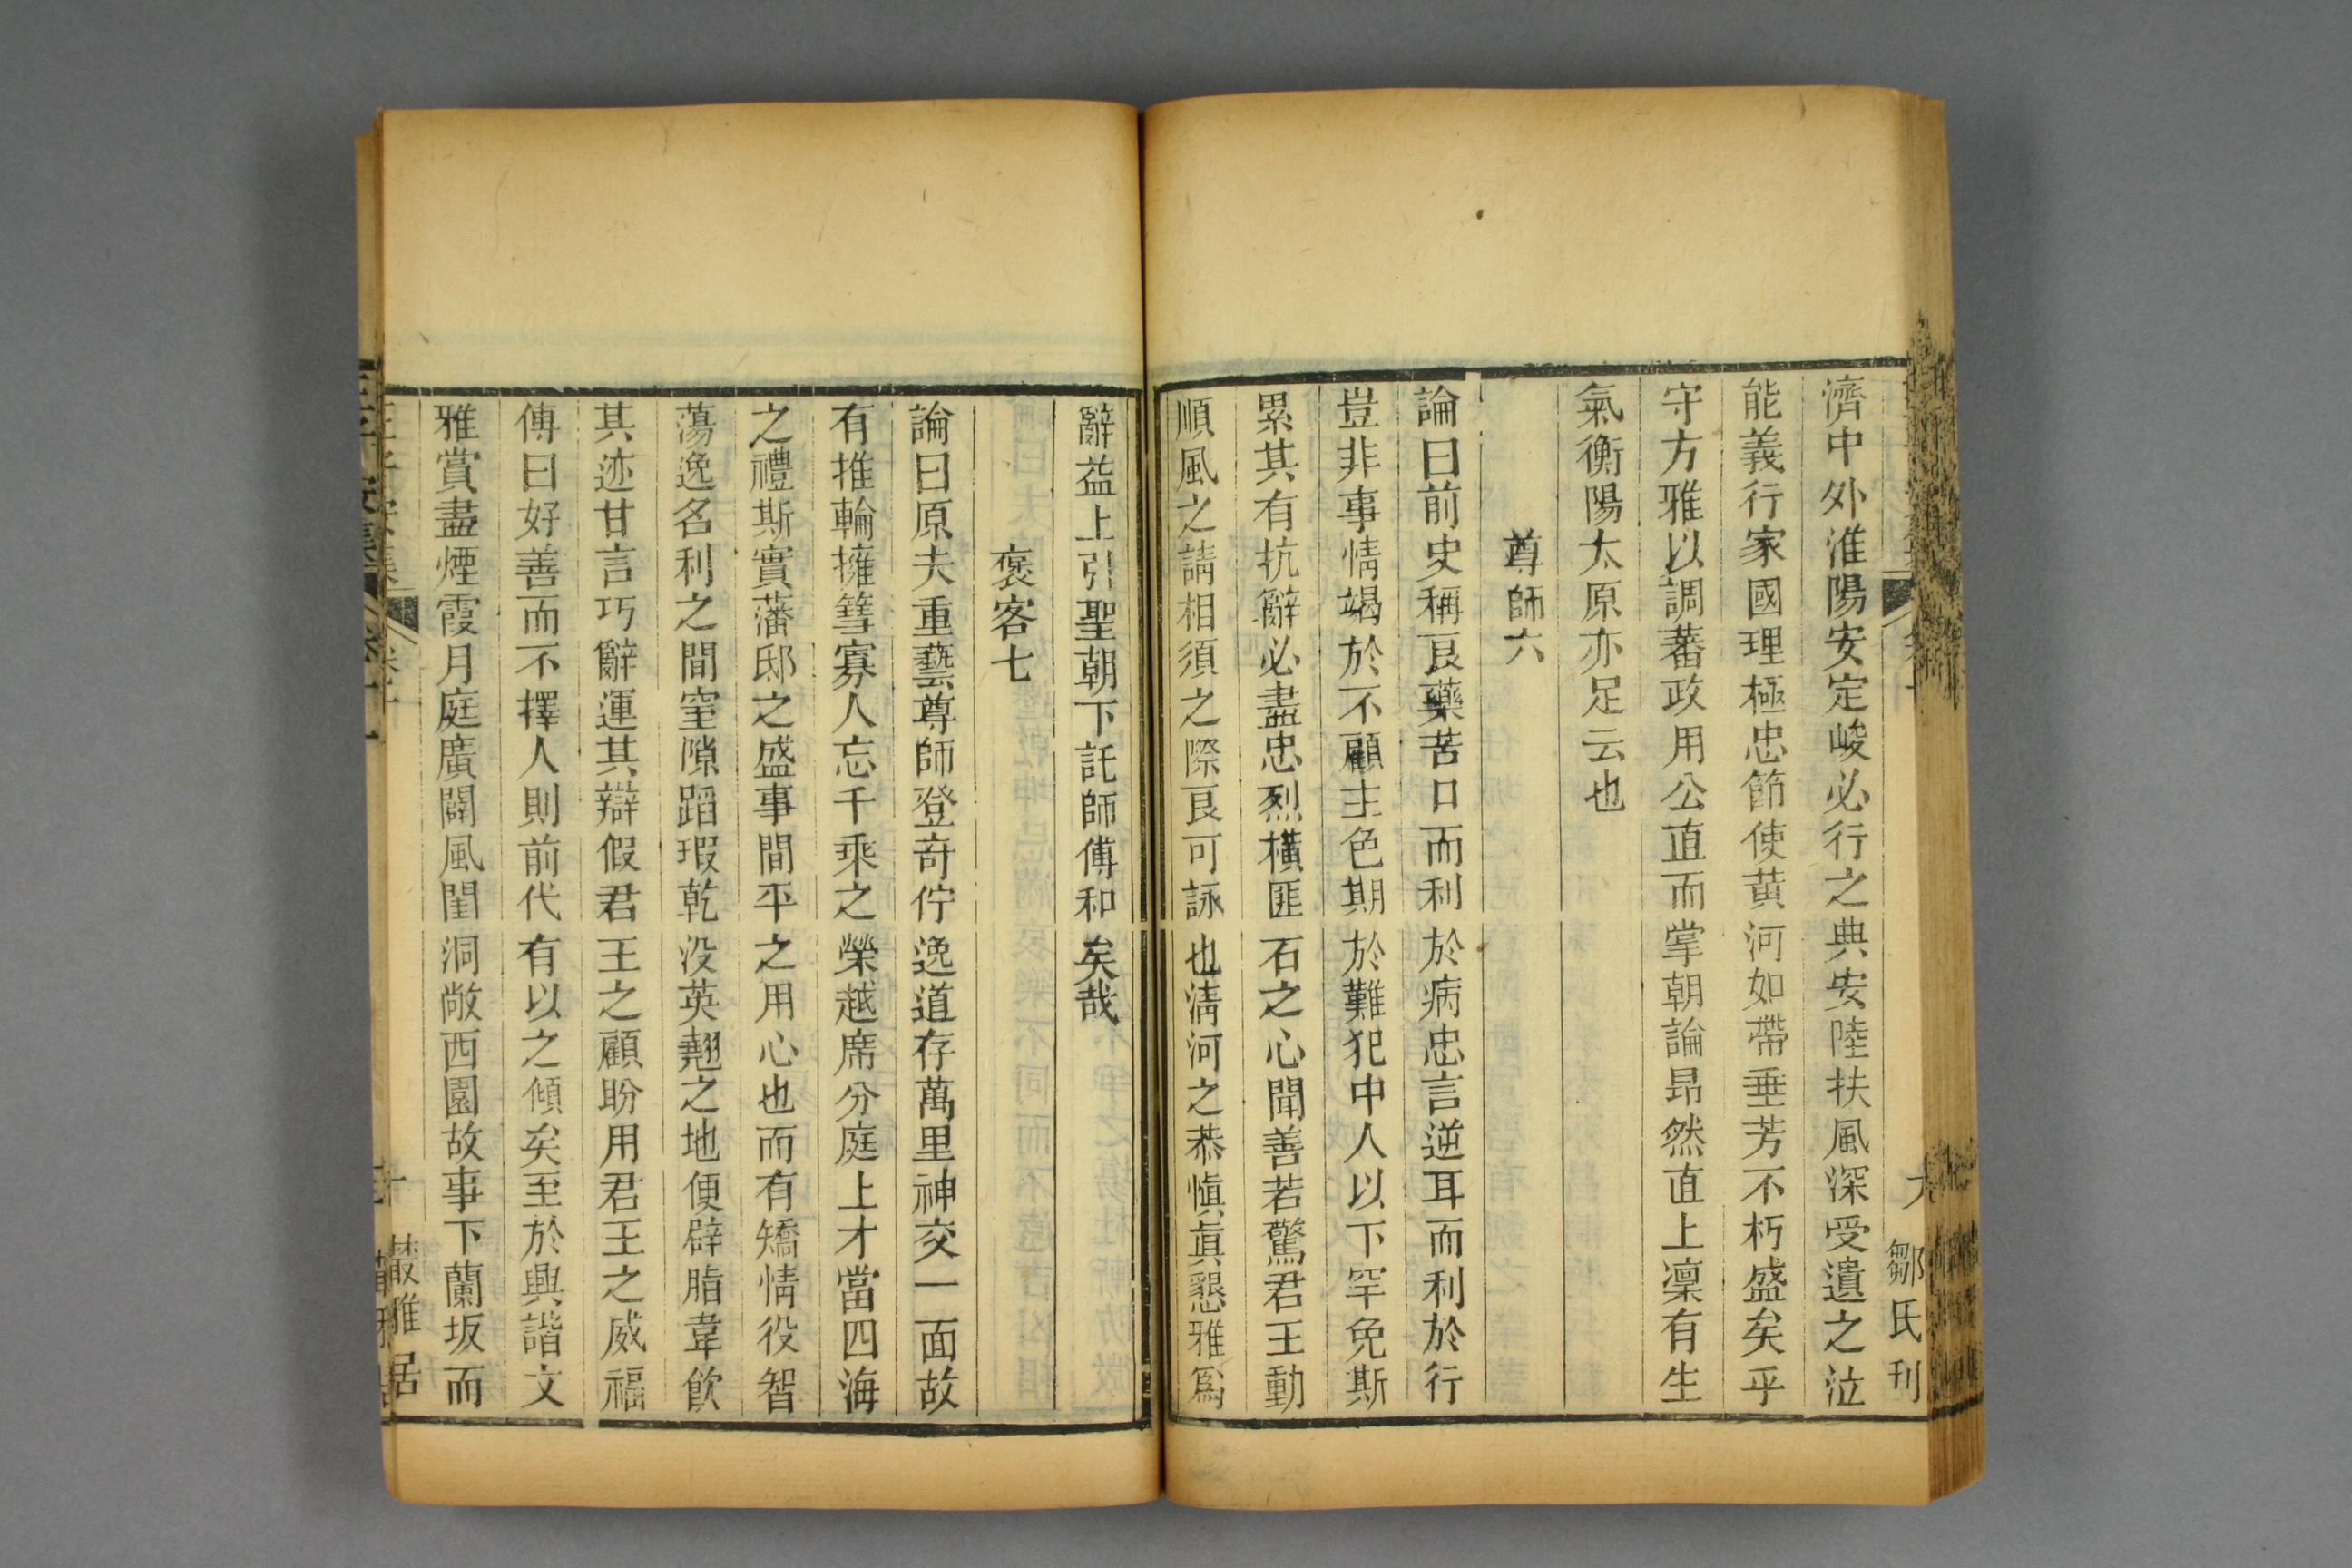 濟中外淮陽安定峻必行之典安陸扶風深受遺之泣
能義行家國理極忠節使黄河如帶垂芳不朽盛矣乎
守方雅以調蕃政用公直而掌朝論昂然直上凜有生
氣衡陽太原亦足云也
尊師六
論曰前史稱良藥苦口而利於病忠言逆耳而利於行
豈非事情竭於不顧主色期於難犯中人以下罕免斯
累其有抗辭必盡忠烈横匪石之心聞善若驚君王動
順風之請相須之際良可詠也淸河之恭愼眞懇雅爲
鄒氏刋
辭益上引聖朝下託師傅和矣哉
褒客七
論曰原夫重藝尊師登奇佇逸道存萬里神交一面故
有推輪擁篲寡人忘千乘之榮越席分庭上才當四海
之禮斯實藩邸之盛事間平之用心也而有矯情役智
蕩逸名利之間窒隙蹈瑕乾没英翹之地便辟脂韋飮
其迹甘言巧辭運其辯假君王之顧盼用君王之威福
傳曰好善而不擇人則前代有以之傾矣至於興諧文
雅賞盡煙霞月庭廣闢風閨洞敞西園故事下蘭坂而
王子安集 卷十 十 叢雅居